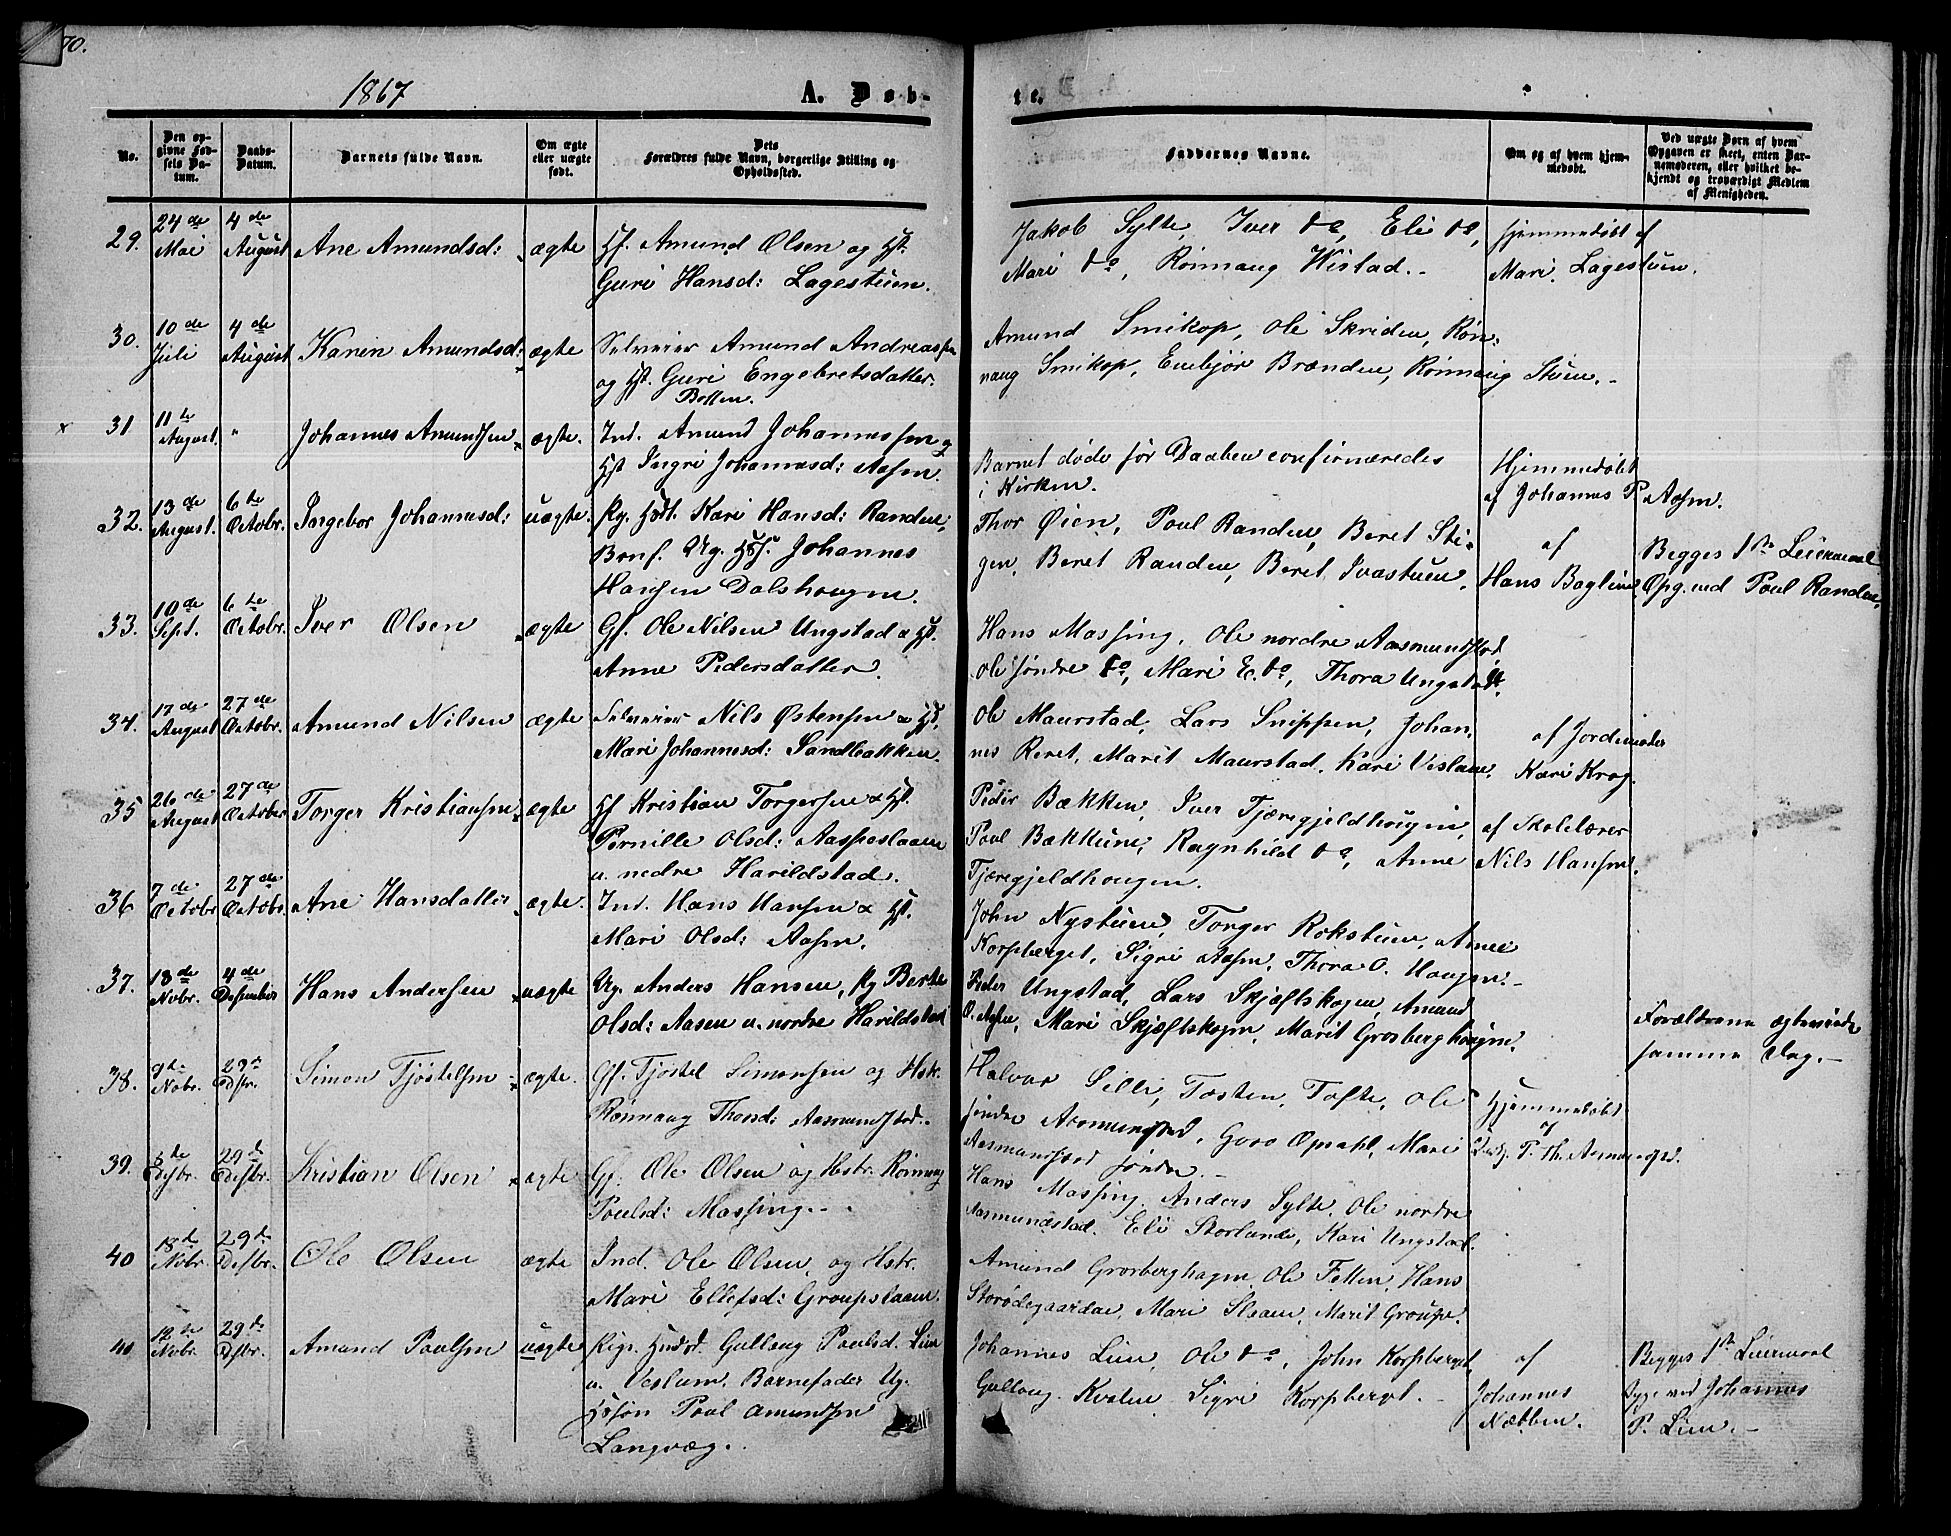 70.
1867
A. Døb-
te.
No.
Den op-
givne Fød-
sels Da-
tum.
Daabs-
Datum.
Barnets fulde Navn.
Om ægte
eller uægte
født.
Dets
Forældres fulde Navn, borgerlige Stilling og
Opholdssted.
Faddernes Navne.
Om og af hvem hjem-
medøbt.
Ved uægte Børn af hvem
Opgaven er skeet, enten Bar-
nemoderen, eller hvilket be-
kjendt og troværdigt Medlem
af Menigheden.
29. 24de Mai 4de August Ane Amundsd: ægte Gf. Amund Olsen og Hst.
Guri Hansd: Lagestuen.
Jakob Sylte, Iver do, Eli do,
Mari do, Rönnaug Wistad.
hjemmedøbt af
Mari Lagestuen.
30. 10de Juli 4de August Karen Amundsd: ægte Selveier Amund Andreassen
og Hst. Guri Engebretsdatter.
Botten.
Amund Smikop, Ole Skriden, Rön-
naug Smikop, Embjör Brænden, Rönnaug Stuen.
x 31 11te August. " Johannes Amundsen ægte. Ind. Amund Johannessen og
Hst Ingri Johannesd: Aasen.
Barnet døde før Daaben confirmeredes
i Kirken.
Hjemmedøbt
af Johannes P. Aasen.
32. 13de August. 6te Octobr. Ingebor Johannesd: uægte. Pg. Hdt. Kari Hansd: Randen,
Barnf. Ug. Hsf. Johannes
Hansen Dalshougen.
Thor Øien, Poul Randen, Beret Sti-
gen, Beret Randen, Beret Ivastuen.
af
Hans Baglien
Begges 1ste Leiermaal
Opg. ved Poul Randen.
33. 10de Sept. 6te Octobr. Iver Olsen ægte Gf. Ole Nilsen Ungstad & Hst.
Anne Pedersdatter.
Hans Massing, Ole nordre Aasmundstad,
Ole søndre do, Mari E. do, Thora Ungstad.
34. 17de August 27de Octobr. Amund Nilsen ægte Selveier Nils Østensen & Hst.
Mari Johannesd: Sandbakken.
Ole Maurstad, Lars Snippen, Johan-
nes Reret, Marit Maurstad, Kari Veslum.
af Jordemoder
Kari Krog.
35 26de August 27de October Torger Kristiansen ægte Gf Kristian Torgersen & Hst.
Pernille Olsd: Aaspeslaaen
u. nedre Harildstad.
Peder Bækken, Iver Tjæregjeldhougen,
Poul Bækkene, Ragnhild do, Anne
Tjæregjeldhougen.
af Skolelærer
Nils Hansen.
36 7de Octobr 27de Octobr. Ane Hansdatter ægte. Ind. Hans Hansen & Hst.
Mari Olsd: Aasen.
John Nystuen, Torger Rokstuen, Anne
Korpberget, Sigri Aasen, Thora O. Haugen.
37. 18de Novbr. 4de Desember Hans Andersen uægte Ug. Anders Hansen, Pg Berte
Olsd: Aasen u. nordre Harildstad
Peder Ungstad, Lars Skjæftskogen, Amund
O. Aasen, Mari Skjæftskogen, Marit Grosberghougen.
Forældrene ægteviede
samme Dag.
38. 9de Nobr. 29de Desbr. Simon Tjöstelsen ægte. Gf. Tjöstel Simensen og Hsk.
Rönnaug Thorsd: Aasmundstad.
Halvar Lillie, Tosten, Tofte, Ole
söndre Aasmundstad, Goro Opsahl, Mari
Aasmundstad søndre.
Hjemmedøbt
af
P. Th. Aasmundstad.
39. 8de Desbr. 29de Desbr. Kristian Olsen ægte Gf. Ole Olsen og Hstr. Rönnaug
Poulsd: Massing.
Hans Massing, Anders Sylte, Ole nordre
Aasmundstad, Eli Storlunde, Kari Ungstad.
40 18de Nobr. 29de Desbr. Ole Olsen ægte Ind. Ole Olsen og Hstr.
Mari Ellefsd: Groupslaaen.
Amund Grosberghagen, Ole Fetten, Hans
Storødegaarden, Mari Slaaen, Marit Groupe.
41 12te Novbr. 29de Desbr. Amund Poulsen uægte Pige Husd. Gullaug Poulsd. Lien
u. Veslum. Barnefader Ug.
Hssön Poul Amundsen
Langvæg.
Johannes Lien, Ole do, John Korpberget,
Gullaug Kvalen Sigri Korpberget.
af
Johannes
Næbben.
Begges 1ste Leiermaal
Opg. ved Johannes
P. Lien.